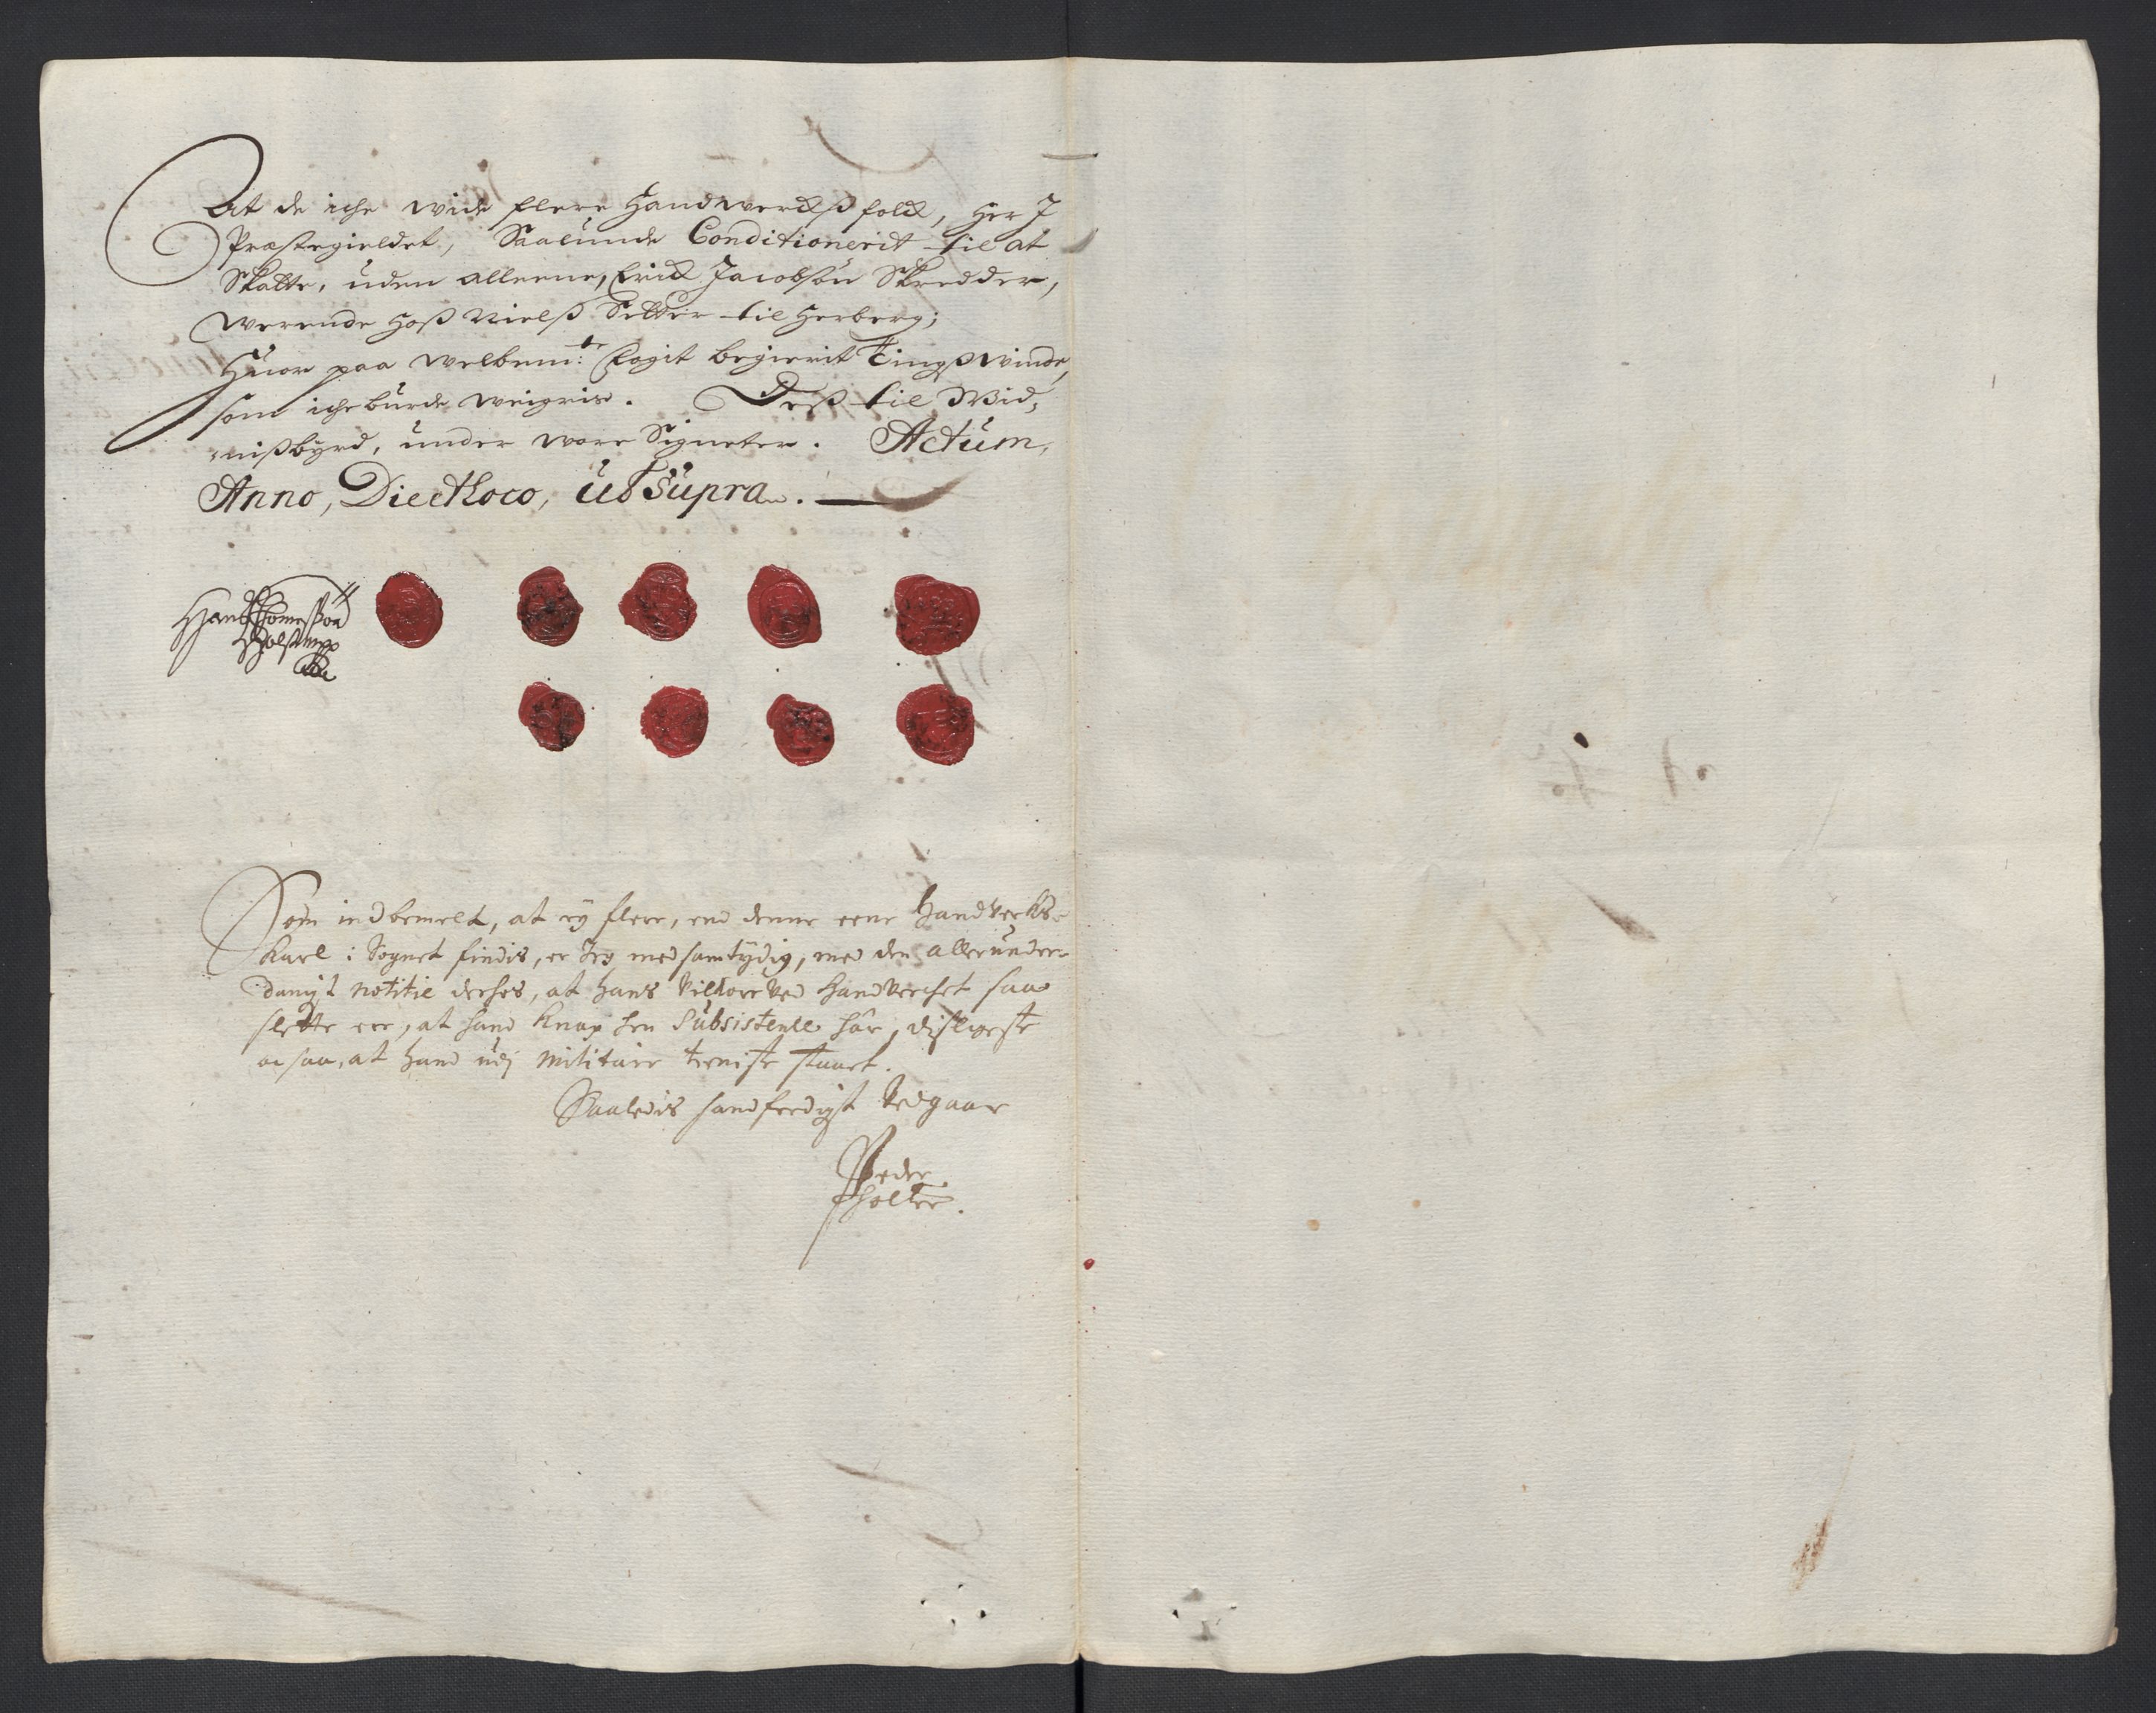 At de iche wide flere Handwerckß folck, Her J
Præstegieldet, Saalunde Conditionerit til at
Skatte, uden alleene, Erick Jacobsøn Skredder,
Werende Hoß Nielß Setter til Herberg;
Huor paa Welbem:te Fogit begierit Tingßwinde,
som iche burde weigris. Deß til Wid,
nißbyrd, under wore Signeter. Actum,
Anno, Die et loco, ut supra.
Hans Thomeßøn
Som indbemelt, at ey flere, end denne eene Handverks-
Karl i Sognet findis, er Jeg med samtydig, med den allerunder-
danigt notitie derhos, at hans vilkor ved handverchet saa
slette ere, at hand knap sin Subsistence har, disligeste
oc saa, at hand udj militair tieniste staaer.
Saaledis sandferdigt Vedgaar
Peder
Holter.